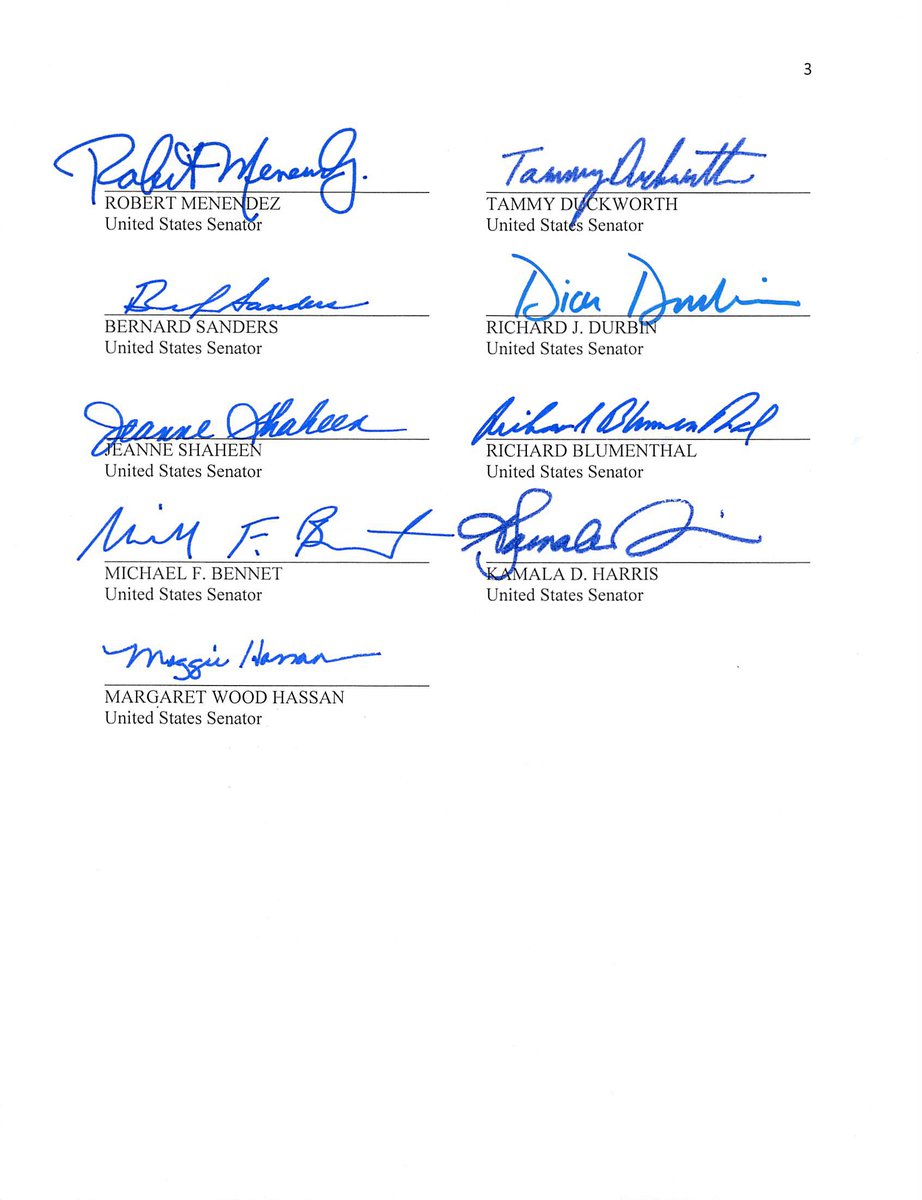 3
Robert Menendez
ROBERT MENENDEZ
United States Senator
Tammy Duckworth
TAMMY DUCKWORTH
United States Senator
Sanders
BERNARD SANDERS
United States Senator
Dick Durbin
RICHARD J. DURBIN
United States Senator
Jeanne Shaheen
JEANNE SHAHEEN
United States Senator
Richard Blumenthal
RICHARD BLUMENTHAL
United States Senator
F.
MICHAEL F. BENNET
United States Senator
Kamala
KAMALA D. HARRIS
United States Senator
Maggie Hassan
MARGARET WOOD HASSAN
United States Senator